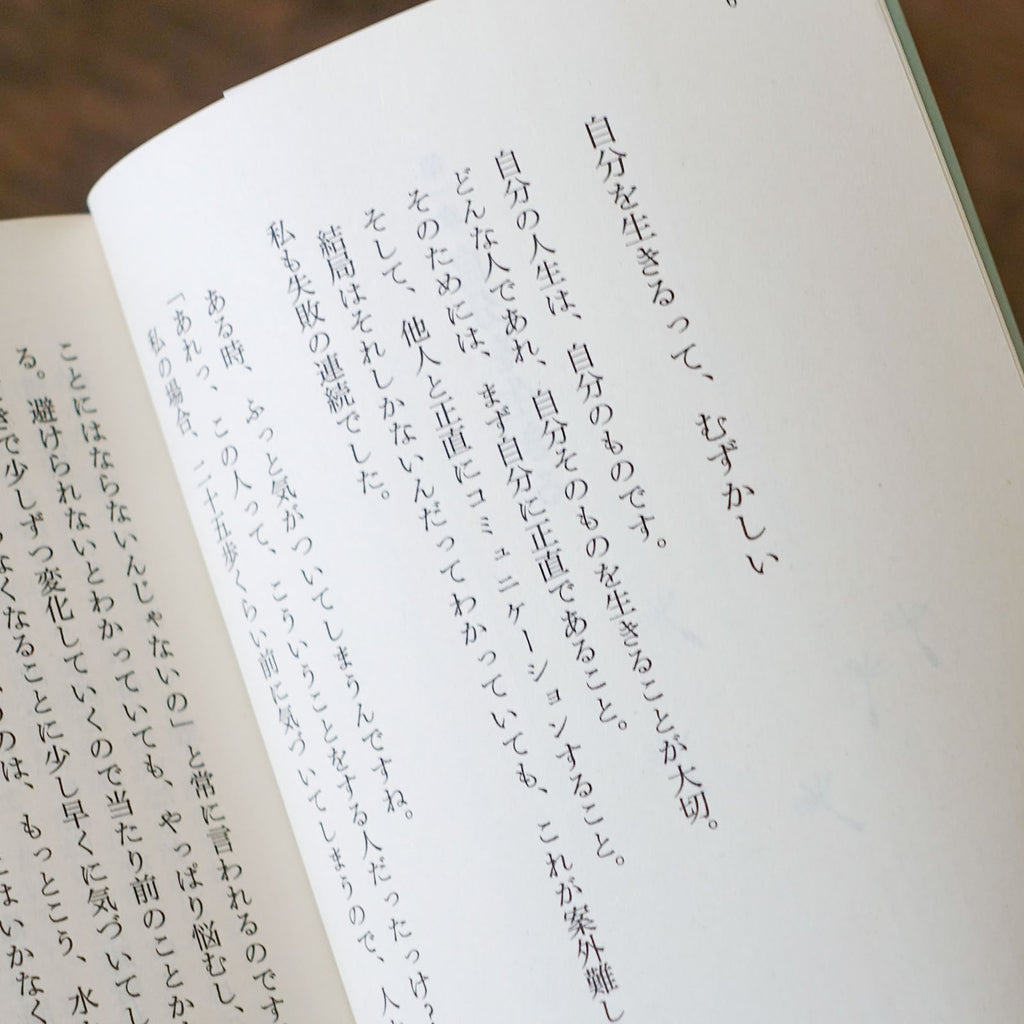 自分を生きるって、むずかしい
自分の人生は、自分のものです。
どんな人であれ、自分そのものを生きることが大切。
そのためには、まず自分に正直であること。
そして、他人と正直にコミュニケーションすること。
結局はそれしかないんだってわかっていても、これが案外難し
私も失敗の連続でした。
ある時、ふっと気がついてしまうんですね。
「あれっ、この人って、こういうことをする人だったっけ?
私の場合、二十五歩くらい前に気づいてしまうので、人
ことにはならないんじゃないの」と常に言われるのです
る。避けられないとわかっていても、やっぱり悩むし、
きで少しずつ変化していくので当たり前のことか
なくなることに少し早くに気づいてし
のは、もっとこう、水
はいかなく